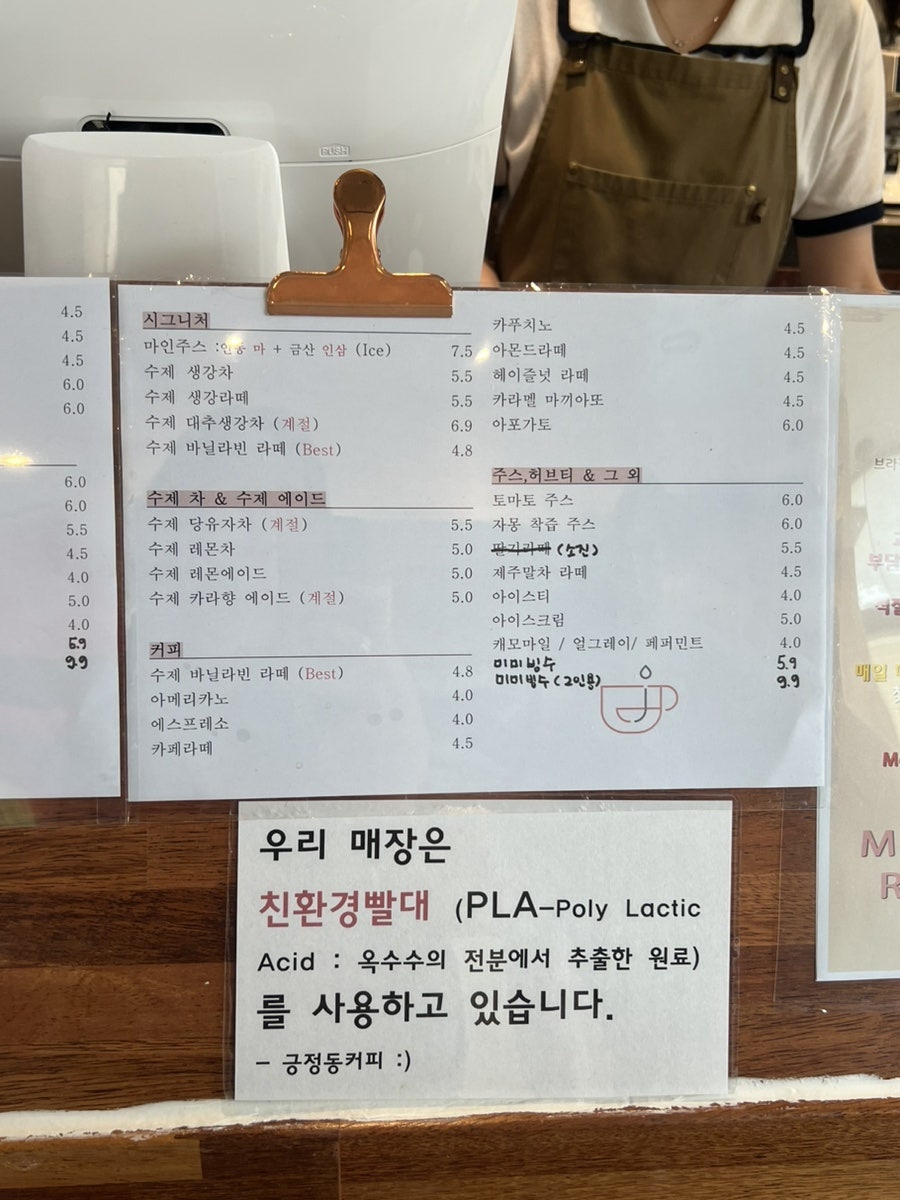 PUSH
4.5
4.5
4.5
6.0
6.0
6.0
6.0
5.5
4.5
4.0
5.0
4.0
5.9
9.9
시그니처
마인주스 : 마 + 금산 인삼 (Ice) 7.5
수제 생강차 5.5
수제 생강라떼 5.5
수제 대추생강차 (계절) 6.9
수제 바닐라빈 라떼 (Best) 4.8
수제 차 & 수제 에이드
수제 당유자차 (계절) 5.5
수제 레몬차 5.0
수제 레몬에이드 5.0
수제 카라향 에이드 (계절) 5.0
커피
수제 바닐라빈 라떼 (Best) 4.8
아메리카노 4.0
에스프레소 4.0
카페라떼 4.5
카푸치노 4.5
아몬드라떼 4.5
헤이즐넛 라떼 4.5
카라멜 마끼아또 4.5
아포가토 6.0
주스,허브티 & 그 외
토마토 주스 6.0
자몽 착즙 주스 6.0
딸기라떼 (소진) 5.5
제주말차 라떼 4.5
아이스티 4.0
아이스크림 5.0
캐모마일 / 얼그레이/ 페퍼민트 4.0
미미빙수 5.9
미미빙수 (2인용) 9.9
매일
우리 매장은
친환경빨대 (PLA-Poly Lactic
Acid : 옥수수의 전분에서 추출한 원료)
를 사용하고 있습니다.
- 긍정동커피 :)